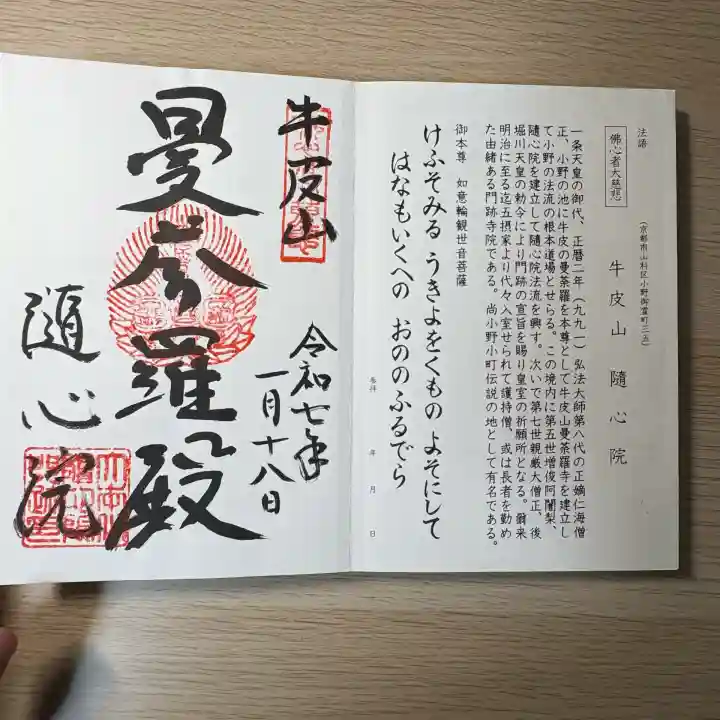 法語
佛心者大慈悲
(京都市山科区小野御霊町三五)
牛皮山 隨心院
一条天皇の御代、正暦二年(九九一)弘法大師第八代の正嫡仁海僧
正、小野の池に牛皮の曼荼羅を本尊として牛皮山曼荼羅寺を建立し
て小野の法流の根本道場とせらる。この境内に第五世増俊阿闍梨、
隨心院を建立して隨心院法流を興す。次いで第七世親厳大僧正、後
堀川天皇の勅令により門跡の宣旨を賜り皇室の祈願所となる。爾来
明治に至る迄五摂家より代々入室せられて護持僧、或は長者を勤め
た由緒ある門跡寺院である。尚小野小町伝説の地として有名である。
御本尊 如意輪観世音菩薩
けふそみる うきよをくもの よそにして
はなもいくへの おののふるでら
参拝 年 月 日
牛皮山
令和七年
一月十八日
曼荼羅殿
隨心院